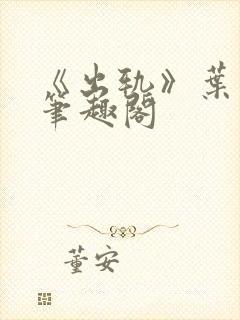 《出轨》葉
筆趣閣
董安